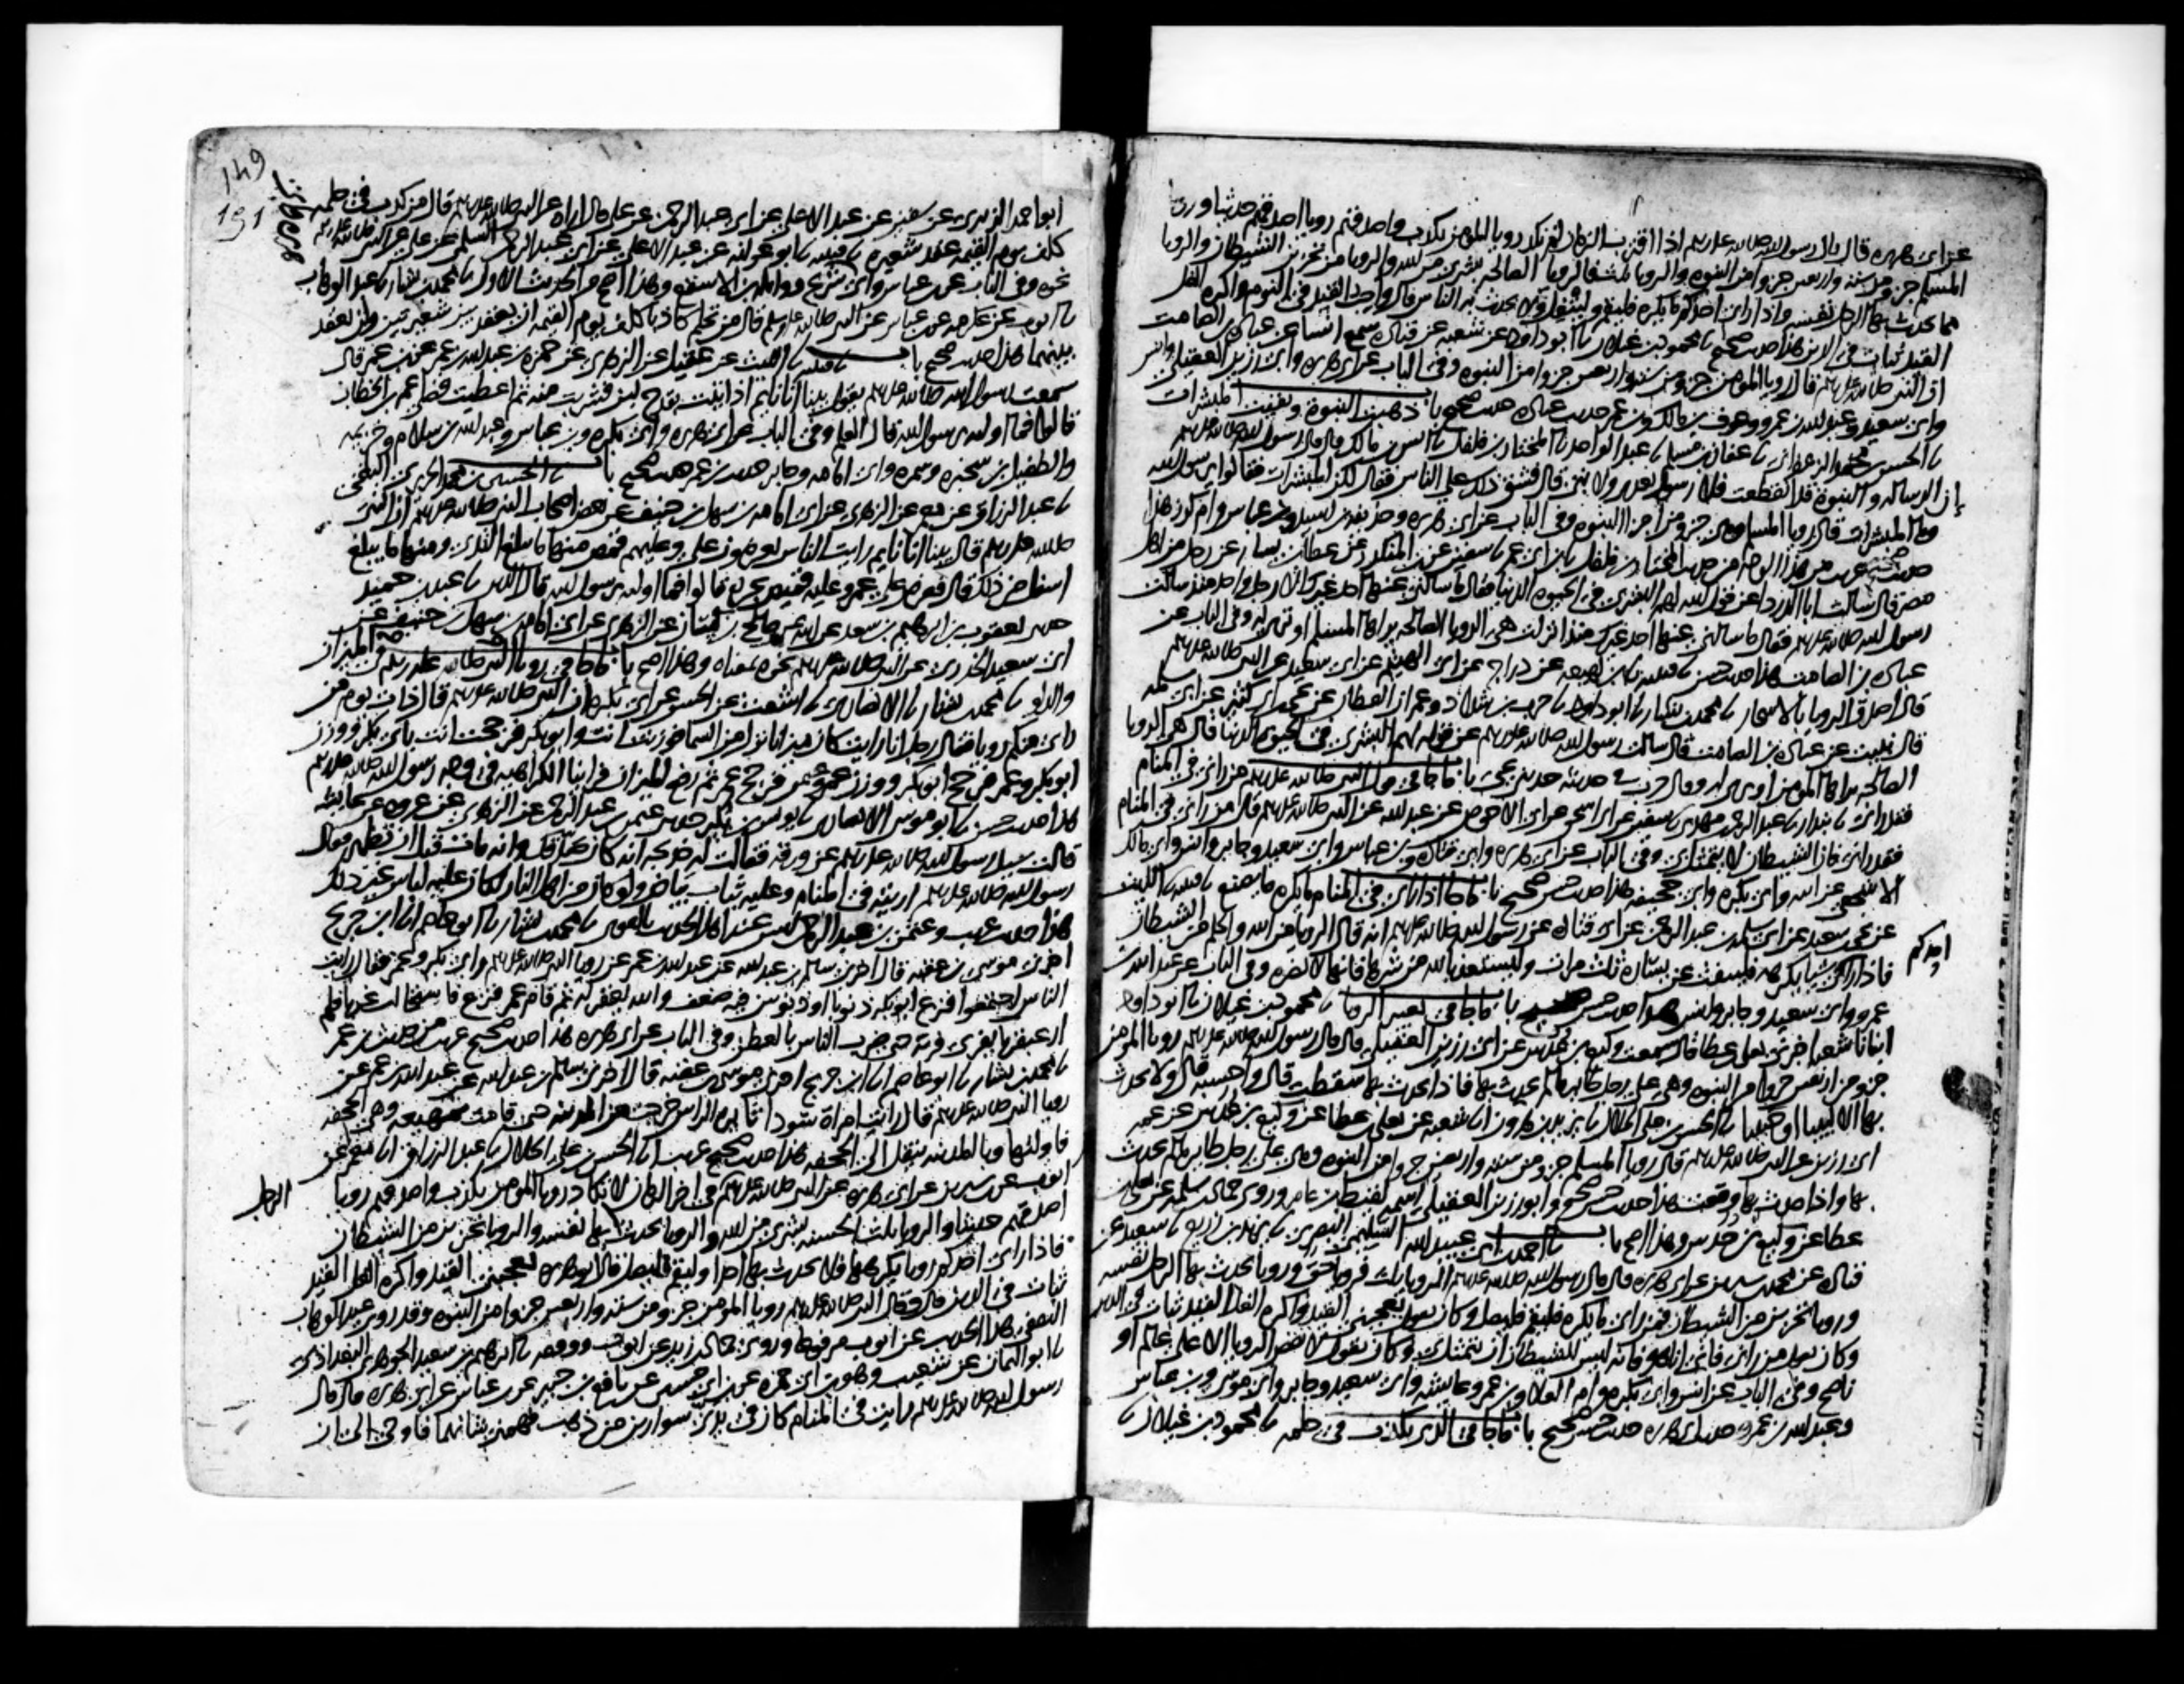 عن ابى هريره قال قال رسول الله صلى الله عليه وسلم اذا اقترب الزمان لم تكد رويا المومن تكذب واصدقهم رويا اصدقهم حديثا ورويا
المسلم جزو من سته واربعين جزوا من النبوه والرويا ثلث فالرويا الصالحه بشرى من الله والرويا من تحزين الشيطان والرويا
مما يحدث بها الرجل نفسه واذا راى احدكم ما يكره فليقم وليتفل ولا يحدث به الناس قال واحب القيد فى النوم واكره الغل
القيد ثبات فى الدين هذا حديث صحيح نا محمود بن غيلان نا ابو داود عن شعبه عن قتاده سمع انسا عن عباده بن الصامت
ان النبى صلى الله عليه وسلم قال رويا المومن جزو من سته واربعين جزوا من النبوه وفى الباب عن ابى هريره وابى رزين العقيلى وانس
وابى سعيد وعبد الله بن عمرو وعوف بن مالك وبن عمر حديث عباده حديث صحيح باب ذهبت النبوة وبقيت المبشرات
نا الحسن بن محمد الزعفرانى نا عفان بن مسلم نا عبد الواحد نا المختار بن فلفل نا انس بن مالك قال قال رسول الله صلى الله عليه وسلم
ان الرساله والنبوة قد انقطعت فلا رسول بعدى ولا نبى قال فشق ذلك على الناس فقال لكن المبشرات فقالوا يا رسول الله
وما المبشرات قال رويا المسلم وهى جزو من اجزا النبوه وفى الباب عن ابى هريره وحذيفه بن اسيد وبن عباس وام كرز هذا
حديث صحيح غريب من هذا الوجه من حديث المختار بن فلفل نا بن ابى عمر نا سفين عن بن المنكدر عن عطا بن يسار عن رجل من اهل
مصر قال سالت ابا الدرداء عن قول الله لهم البشرى فى الحيوه الدنيا فقال ما سالنى عنها احد غيرك الا رجل واحد منذ سالت
رسول الله صلى الله عليه وسلم فقال ما سالنى عنها احد غيرك منذ انزلت هى الرويا الصالحه يراها المسلم او ترى له وفى الباب عن
عباده بن الصامت هذا حديث حسن نا قتيبه نا بن لهيعه عن دراج عن ابى الهيثم عن ابى سعيد عن النبى صلى الله عليه وسلم
قال اصدق الرويا بالاسحار نا محمد بن بشار نا ابو داود نا حرب بن شداد وعمران القطان عن يحيى بن ابى كثير عن ابى سلمه
قال نبيت عن عباده بن الصامت قال سالت رسول الله صلى الله عليه وسلم عن قوله لهم البشرى فى الحيوه الدنيا قال هى الرويا
الصالحه يراها المومن او ترى له وقال حرب فى حديثه حدثنى يحيى باب ما جا فى قول النبى صلى الله عليه وسلم من رانى فى المنام
فقد رانى نا بندار نا عبد الرحمن بن مهدى نا سفين عن ابى اسحق عن ابى الاحوص عن عبد الله عن النبى صلى الله عليه وسلم قال من رانى فى المنام
فقد رانى فان الشيطان لا يتمثل بى وفى الباب عن ابى هريره وابى قتاده وبن عباس وابى سعيد وجابر وانس وابى مالك
الاشجعى عن ابيه وابى بكره وابى جحيفه هذا حديث حسن صحيح باب ما جا اذا راى فى المنام ما يكره ما يصنع نا قتيبه نا الليث
عن يحيى بن سعيد عن ابى سلمه بن عبد الرحمن عن ابى قتاده عن رسول الله صلى الله عليه وسلم انه قال الرويا من الله والحلم من الشيطان
فاذا راى شيا يكرهه فلينفث عن يساره ثلث مرات وليستعذ بالله من شرها فانها لا تضره وفى الباب عن عبد الله بن
احدكم
عمرو وابى سعيد وجابر وانس هذا حديث حسن صحيح باب ما جا فى تعبير الرويا نا محمود بن غيلان نا ابو داود
انبانا شعبه اخبرنى يعلى بن عطا قال سمعت وكيع بن عدس عن ابى رزين العقيلى قال قال رسول الله صلى الله عليه وسلم رويا المومن
جزو من اربعين جزوا من النبوه وهى على رجل طاير ما لم يحدث بها فاذا يحدث بها سقطت قال واحسبه قال ولا يحدث
بها الا لبيبا او حبيبا نا الحسن بن على الخلال نا يزيد بن هرون انا شعبه عن يعلى بن عطا عن وكيع بن عدس عن عمه
ابى رزين عن النبى صلى الله عليه وسلم قال رويا المسلم جزو من سته واربعين جزوا من النبوه وهى على رجل طاير ما لم يحدث
بها واذا حدث بها وقعت هذا حديث حسن صحيح وابو رزين العقيلى اسمه لقيط بن عامر وروى حماد بن سلمه عن يعلى بن
عطا عن وكيع بن حدس وهذا اصح باب نا احمد بن ابى عبيد الله السليمى البصرى نا يزيد بن زريع نا سعيد عن
قتاده عن محمد بن سيرين عن ابى هريره قال قال رسول الله صلى الله عليه وسلم الرويا ثلث فرويا حق ورويا يحدث بها الرجل نفسه
ورويا تحزين من الشيطان فمن راى ما يكره فليقم فليصل وكان يقول يعجبنى القيد واكره الغل القيد ثبات فى الدين
وكان يقول من رانى فانى انا هو فانه ليس للشيطان ان يتمثل بى وكان يقول لا تقص الرويا الا على عالم او
ناصح وفى الباب عن انس وابى بكره وام العلا وبن عمر وعايشه وابى سعيد وجابر وابى موسى وبن عباس
وعبد الله بن عمرو حديث ابى هريره حديث حسن صحيح باب ما جا فى الذى يكذب فى حلمه نا محمود بن غيلان نا
149
151
ابو احمد الزبيرى عن سفين عن عبد الاعلى عن ابى عبد الرحمن عن على قال اراه عن النبى صلى الله عليه وسلم قال من كذب فى حلمه
كلف يوم القيمه عقد شعيره نا قتيبه نا ابو عوانه عن عبد الاعلى عن ابى عبد الرحمن السلمى عن على عن النبى صلى الله عليه وسلم
نحوه وفى الباب عن بن عباس وابى شريح وواثله بن الاسقع وهذا اصح من الحديث الاول نا محمد بن بشار نا عبد الوهاب
نا ايوب عن عكرمه عن بن عباس عن النبى صلى الله عليه وسلم قال من تحلم كاذبا كلف يوم القيمه ان يعقد بين شعيرتين ولن يعقد
بينهما هذا حديث صحيح باب نا قتيبه نا الليث عن عقيل عن الزهرى عن حمزه بن عبد الله بن عمر عن بن عمر قال
سمعت رسول الله صلى الله عليه وسلم يقول بينا انا نايم اذ اتيت بقدح لبن فشربت منه ثم اعطيت فضلى عمر بن الخطاب
قالوا فما اولته يا رسول الله قال العلم وفى الباب عن ابى هريره وابى بكره وبن عباس وعبد الله بن سلام وخزيمه
والطفيل بن سخبره وسمره وابى امامه وجابر حديث بن عمر حديث صحيح باب نا الحسين بن محمد الجريرى البلخى
نا عبد الرزاق عن معمر عن الزهرى عن ابى امامه بن سهل بن حنيف عن بعض اصحاب النبى صلى الله عليه وسلم ان النبى
صلى الله عليه وسلم قال بينا انا نايم رايت الناس يعرضون على وعليهم قمص منها ما يبلغ الثدى ومنها ما يبلغ
اسفل من ذلك قال فعرض على عمر وعليه قميص يجره قالوا فما اولته يا رسول الله قال الدين نا عبد بن حميد
حدثنى يعقوب بن ابراهيم بن سعد عن ابيه عن صالح بن كيسان عن الزهرى عن ابى امامه بن سهل بن حنيف عن
ابى سعيد الخدرى عن النبى صلى الله عليه وسلم نحوه بمعناه وهذا اصح باب ما جا فى رويا النبى صلى الله عليه وسلم فى الميزان
والدلو نا محمد بن بشار نا الانصارى نا اشعث عن الحسن عن ابى بكره ان النبى صلى الله عليه وسلم قال ذات يوم من
راى منكم رويا فقال رجل انا رايت كان ميزانا نزل من السما فوزنت انت وابو بكر فرجحت انت بابى بكر ووزن
ابو بكر وعمر فرجح ابو بكر ووزن عمر وعثمن فرجح عمر ثم رفع الميزان فراينا الكراهيه فى وجه رسول الله صلى الله عليه وسلم
هذا حديث حسن نا ابو موسى الانصارى نا يونس بن بكير حدثنى عثمن بن عبد الرحمن عن الزهرى عن عروه عن عايشه
قالت سيل رسول الله صلى الله عليه وسلم عن ورقه فقالت له خديجه انه كان صدقك وانه مات قبل ان تظهر فقال
رسول الله صلى الله عليه وسلم اريته فى المنام وعليه ثياب بياض ولو كان من اهل النار لكان عليه لباس غير ذلك
هذا حديث غريب وعثمن بن عبد الرحمن ليس عند اهل الحديث بالقوى نا محمد بن بشار نا ابو عاصم انا ابن جريج
اخبرنى موسى بن عقبه قال اخبرنى سالم بن عبد الله عن عبد الله بن عمر عن رويا النبى صلى الله عليه وسلم وابى بكر وعمر فقال رايت
الناس اجتمعوا فنزع ابو بكر ذنوبا او ذنوبين فيه ضعف والله يغفر له ثم قام عمر فنزع فاستحالت غربا فلم
ار عبقريا يفرى فريه حتى ضرب الناس بالعطن وفى الباب عن ابى هريره هذا حديث صحيح غريب من حديث بن عمر
نا محمد بن بشار نا ابو عاصم انا ابن جريج اخبرنى موسى بن عقبه قال اخبرنى سالم بن عبد الله عن عبد الله بن عمر عن
رويا النبى صلى الله عليه وسلم قال رايت امراة سودا ثايرة الراس خرجت من المدينه حتى قامت بمهيعه وهى الجحفه
فاولتها وبا المدينه ينقل الى الجحفه هذا حديث صحيح غريب نا الحسن بن على الخلال نا عبد الرزاق انا معمر عن
ايوب عن بن سيرين عن ابى هريره عن النبى صلى الله عليه وسلم فى اخر الزمان لا تكاد رويا المومن تكذب واصدقهم رويا
اصدقهم حديثا والرويا ثلث الحسنه بشرى من الله والرويا يحدث بها نفسه والرويا تحزين من الشيطان
الرجل
فاذا راى احدكم رويا يكرهها فلا يحدث بها احدا وليقم فليصل قال ابو هريره يعجبنى القيد واكره الغل القيد
ثبات فى الدين قال وقال النبى صلى الله عليه وسلم رويا المومن جزو من سته واربعين جزوا من النبوه وقد روى عبد الوهاب
الثقفى هذا الحديث عن ايوب مرفوعا وروى حماد بن زيد عن ايوب ووقفه نا ابراهيم بن سعيد الجوهرى البغدادى
نا ابو اليمان عن شعيب وهو بن ابى حمزه عن بن ابى حسين عن نافع بن جبير عن بن عباس عن ابى هريره قال قال
رسول الله صلى الله عليه وسلم رايت فى المنام كان فى يدى سوارين من ذهب فهمنى شانهما فاوحى الى ان